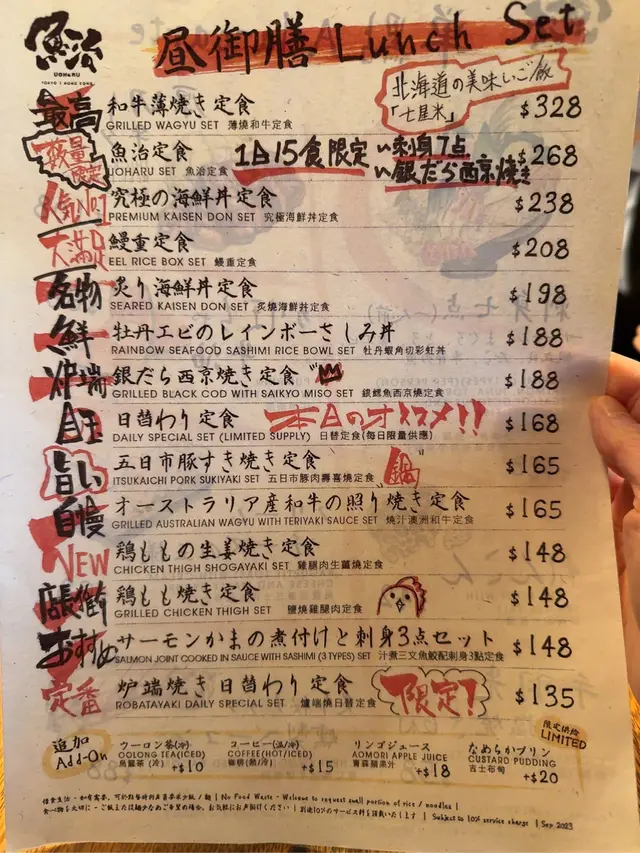 魚治
UOHARU
TOKYO | HONG KONG
昼御膳 Lunch Set
北海道の美味しいご飯
「七星米」
最高
和牛薄焼き定食 $328
GRILLED WAGYU SET 薄燒和牛定食
数量限定
魚治定食 1日15食限定 刺身7点 銀だら西京焼き $268
UOHARU SET 魚治定食
人気No.1
究極の海鮮丼定食 $238
PREMIUM KAISEN DON SET 究極海鮮丼定食
大満足
鰻重定食 $208
EEL RICE BOX SET 鰻重定食
名物
炙り海鮮丼定食 $198
SEARED KAISEN DON SET 炙燒海鮮丼定食
鮮
牡丹エビのレインボーさしみ丼 $188
RAINBOW SEAFOOD SASHIMI RICE BOWL SET 牡丹蝦角切彩虹丼
炉端
銀だら西京焼き定食 $188
GRILLED BLACK COD WITH SAIKYO MISO SET 銀鱈魚西京燒定食
日替わり定食 本日のオススメ!! $168
DAILY SPECIAL SET (LIMITED SUPPLY) 日替定食(每日限量供應)
旨い
五日市豚すき焼き定食 鍋 $165
ITSUKAICHI PORK SUKIYAKI SET 五日市豚肉壽喜燒定食
自慢
オーストラリア産和牛の照り焼き定食 $165
GRILLED AUSTRALIAN WAGYU WITH TERIYAKI SAUCE SET 燒汁澳洲和牛定食
NEW
鶏ももの生姜焼き定食 $148
CHICKEN THIGH SHOGAYAKI SET 雞腿肉生薑燒定食
店長推薦
鶏もも焼き定食 $148
GRILLED CHICKEN THIGH SET 鹽燒雞腿肉定食
おすすめ
サーモンかまの煮付けと刺身3点セット $148
SALMON JOINT COOKED IN SAUCE WITH SASHIMI (3 TYPES) SET 汁煮三文魚鮫配刺身3點定食
定番
炉端焼き日替わり定食 限定! $135
ROBATAYAKI DAILY SPECIAL SET 爐端燒日替定食
追加
Add-On
ウーロン茶(冷)
OOLONG TEA(ICED)
烏龍茶 (冷) +$10
コーヒー(温/冷)
COFFEE(HOT/ICED)
咖啡(熱/冷) +$15
リンゴジュース
AOMORI APPLE JUICE
青森蘋果汁 +$18
限定供應
LIMITED
なめらかプリン
CUSTARD PUDDING
吉士布甸 +$20
惜食生活 - 如有需要,可於點餐時列明需要求少飯 / 麵 | No Food Waste - Welcome to request small portion of rice / noodles |
食べ物を大切に - ご飯または麺少なめご希望の場合、お気軽にお声掛けください | 別途10%のサービス料を頂戴いたします | Subject to 10% service charge | Sep 2023